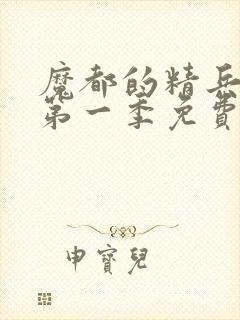 魔都的精兵
第一季免費
申寶兒